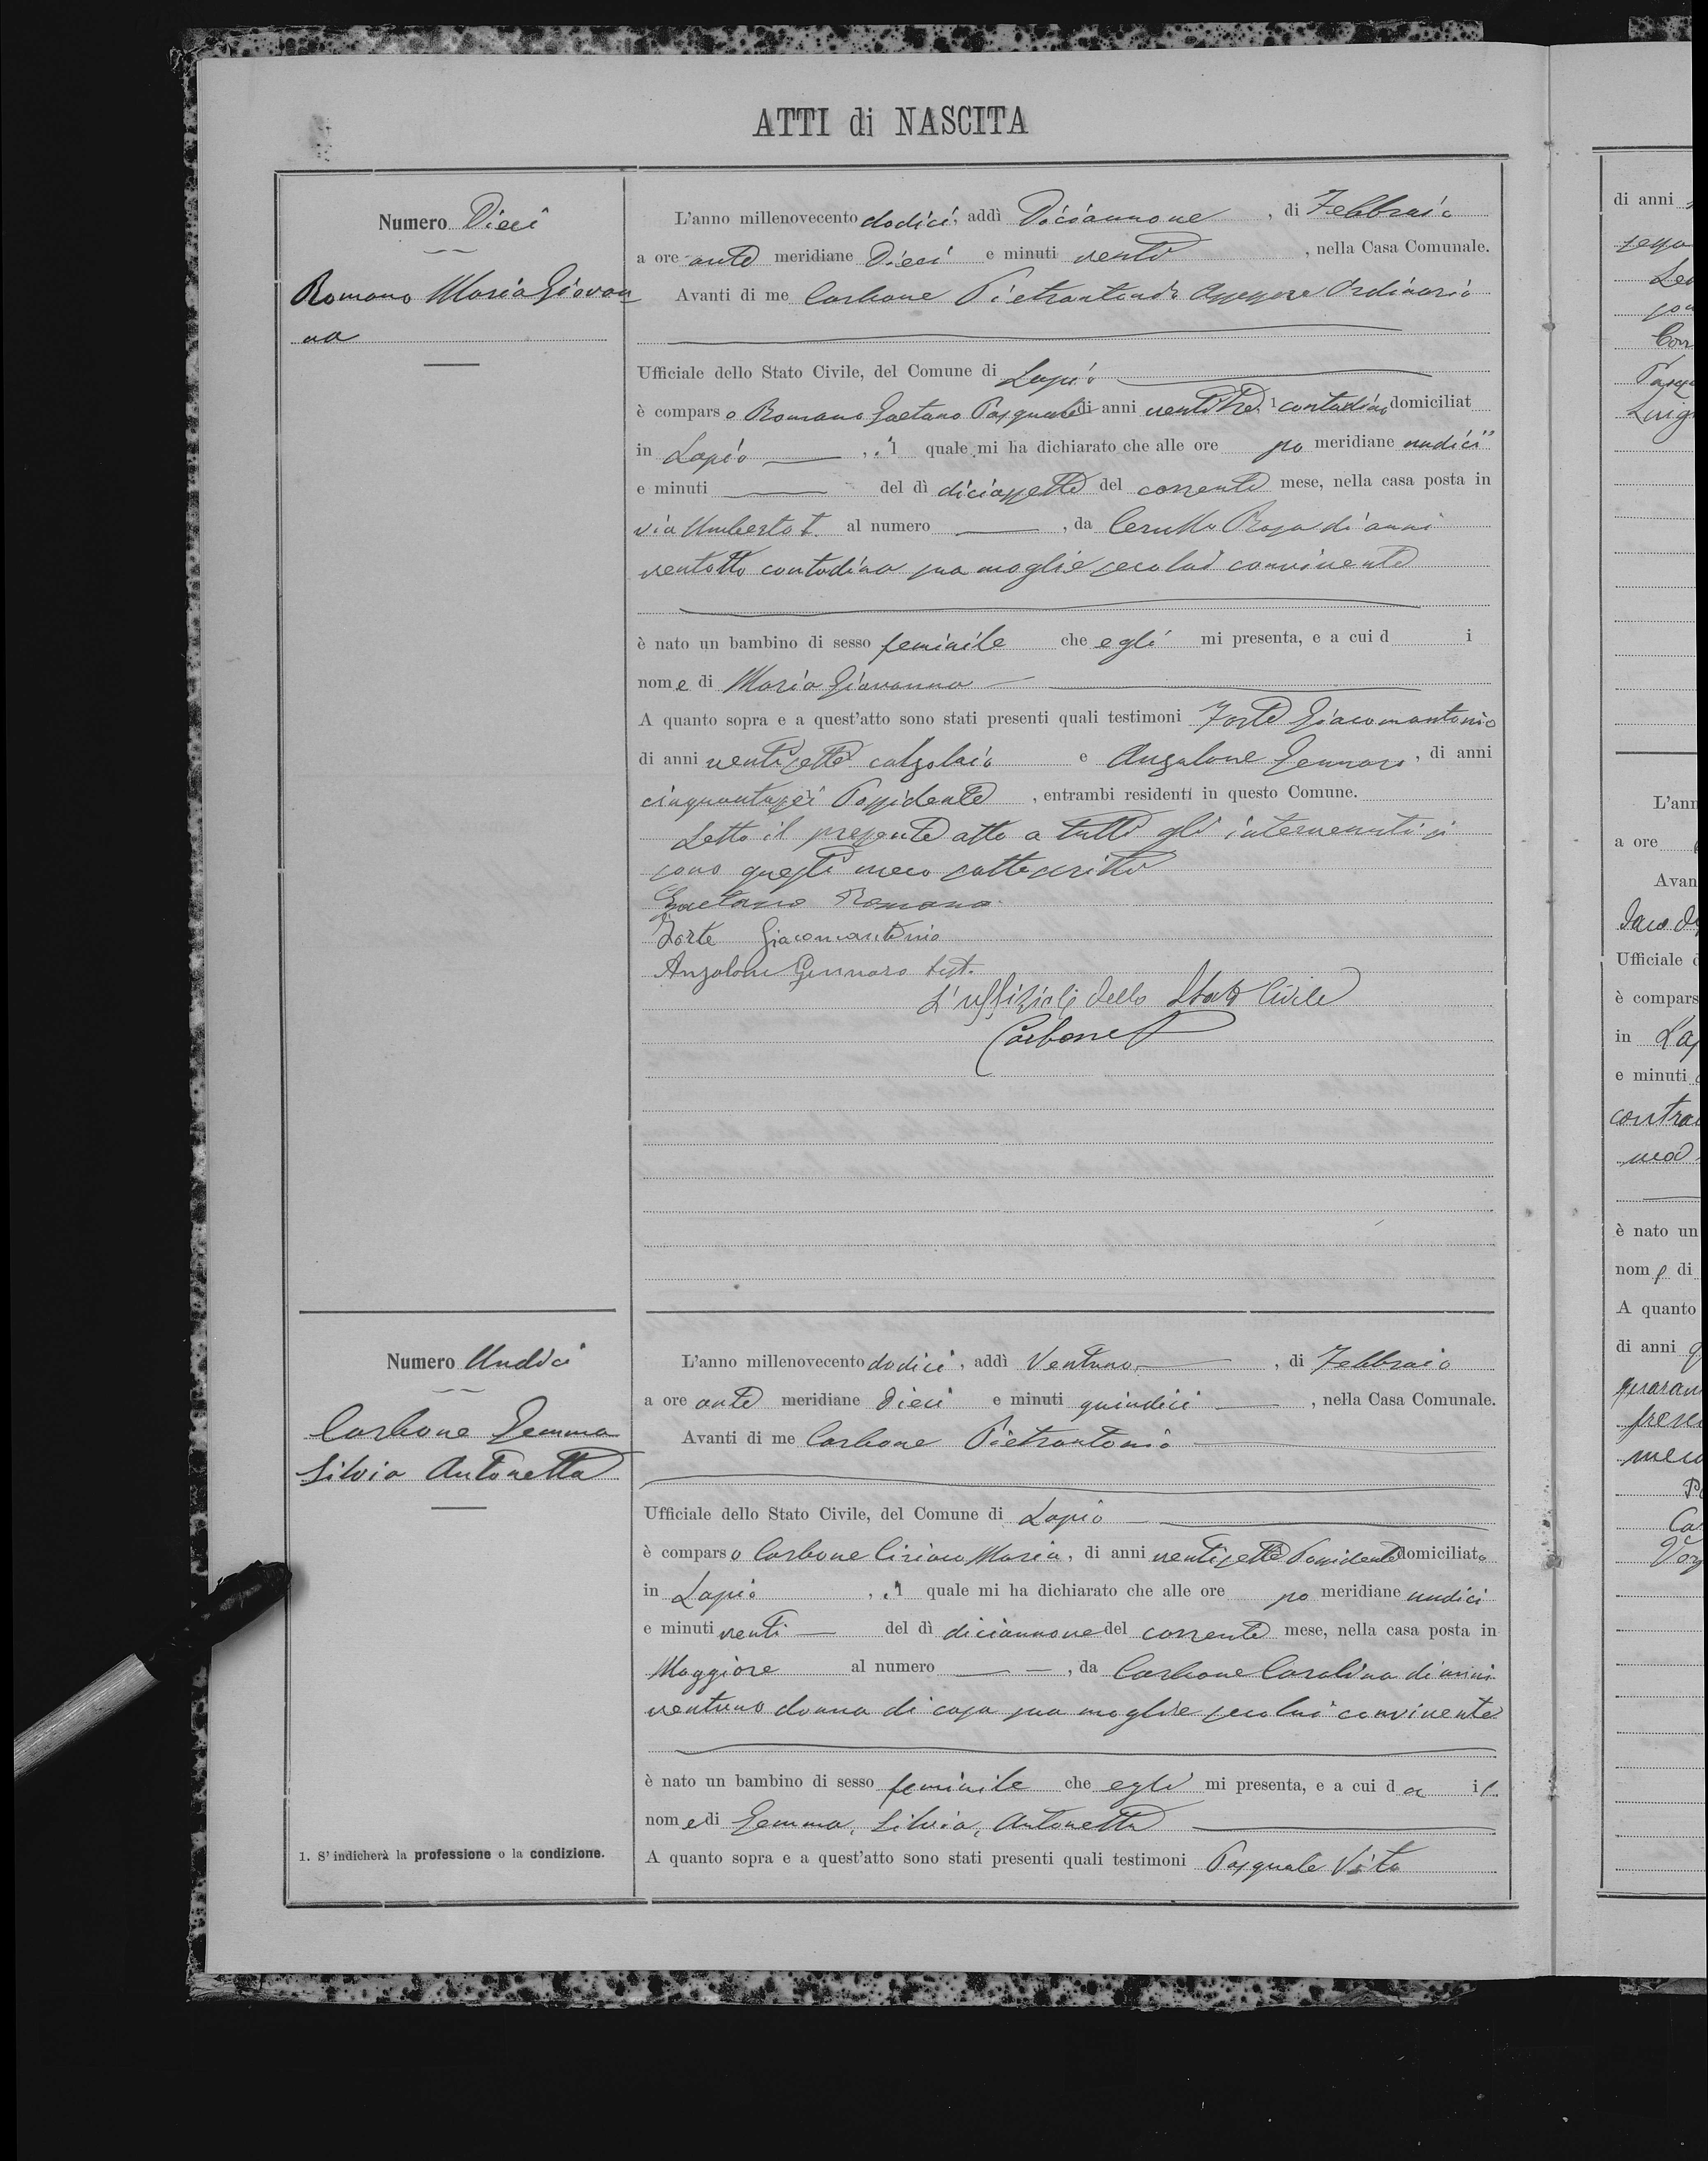 ATTI di NASCITA
Numero Dieci
Romano Maria Giovan
na
L'anno millenovecento dodici, addì Diciannove, di Febbraio
a ore ante meridiane Dieci e minuti venti, nella Casa Comunale.
Avanti di me Carbone Pietrantonio Assessore Ordinario
Ufficiale dello Stato Civile, del Comune di Lapio
è comparso Romano Gaetano Pasquale di anni ventitre 1 contadino domiciliat
in Lapio, il quale mi ha dichiarato che alle ore po meridiane undici
e minuti del dì diciassette del corrente mese, nella casa posta in
via Umberto I. al numero, da Cerullo Rosa di anni
ventotto contadina sua moglie seco lui convivente
è nato un bambino di sesso feminile che egli mi presenta, e a cui d i
nome di Maria Giovanna
A quanto sopra e a quest'atto sono stati presenti quali testimoni Forte Giacomantonio
di anni ventisette calzolaio e Anzalone Gennaro, di anni
cinquantasei Possidente, entrambi residenti in questo Comune.
Letto il presente atto a tutti gli intervenuti si
sono questi meco sottoscritti
Gaetano Romano
Forte Giacomantonio
Anzalone Gennaro test.
L'uffiziale dello Stato Civile
Carbone
Numero Undici
Carbone Gemma
Silvia Antonetta
L'anno millenovecento dodici, addì Ventuno, di Febbraio
a ore ante meridiane dieci e minuti quindici, nella Casa Comunale.
Avanti di me Carbone Pietrantonio
Ufficiale dello Stato Civile, del Comune di Lapio
è comparso Carbone Ciriaco Maria, di anni ventisette Possidente domiciliato
in Lapio, il quale mi ha dichiarato che alle ore po meridiane undici
e minuti venti del dì diciannove del corrente mese, nella casa posta in
Maggiore al numero, da Carbone Carolina di anni
ventuno donna di casa sua moglie seco lui convivente
è nato un bambino di sesso feminile che egli mi presenta, e a cui da il
nome di Gemma, Silvia, Antonetta
A quanto sopra e a quest'atto sono stati presenti quali testimoni Pasquale Vito
1. S'indicherà la professione o la condizione.
di anni
L'ann
a ore
Avan
Ufficiale d
è compars
in Lap
e minuti
contra
è nato un
nome di
A quanto
di anni q